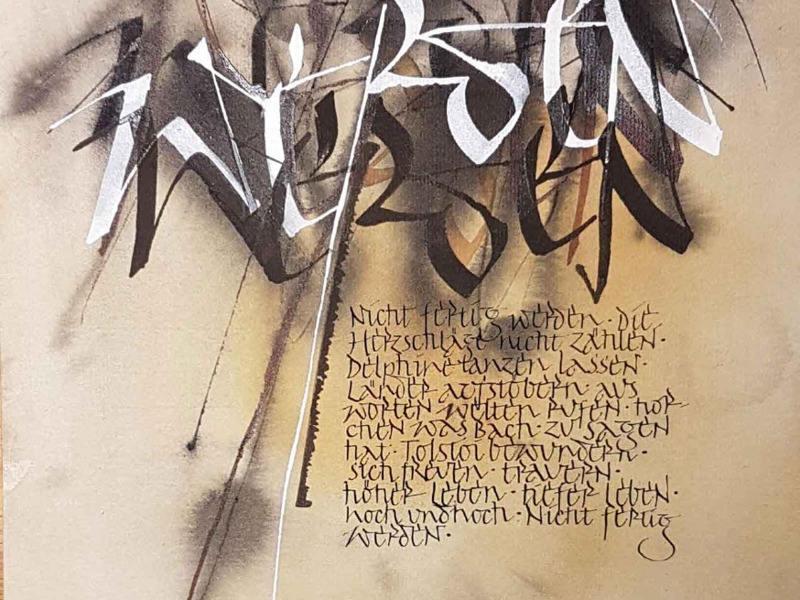 WERDEN
WERDEN
Nicht fertig werden · Die
Herzschläge nicht zählen ·
Delphine tanzen lassen ·
Länder aufstöbern aus
Worten Welten rufen · hor-
chen was Bach · zu sagen
hat · Tolstoi bewundern ·
sich freuen · trauern ·
höher leben · tiefer leben ·
noch und noch · Nicht fertig
werden ·